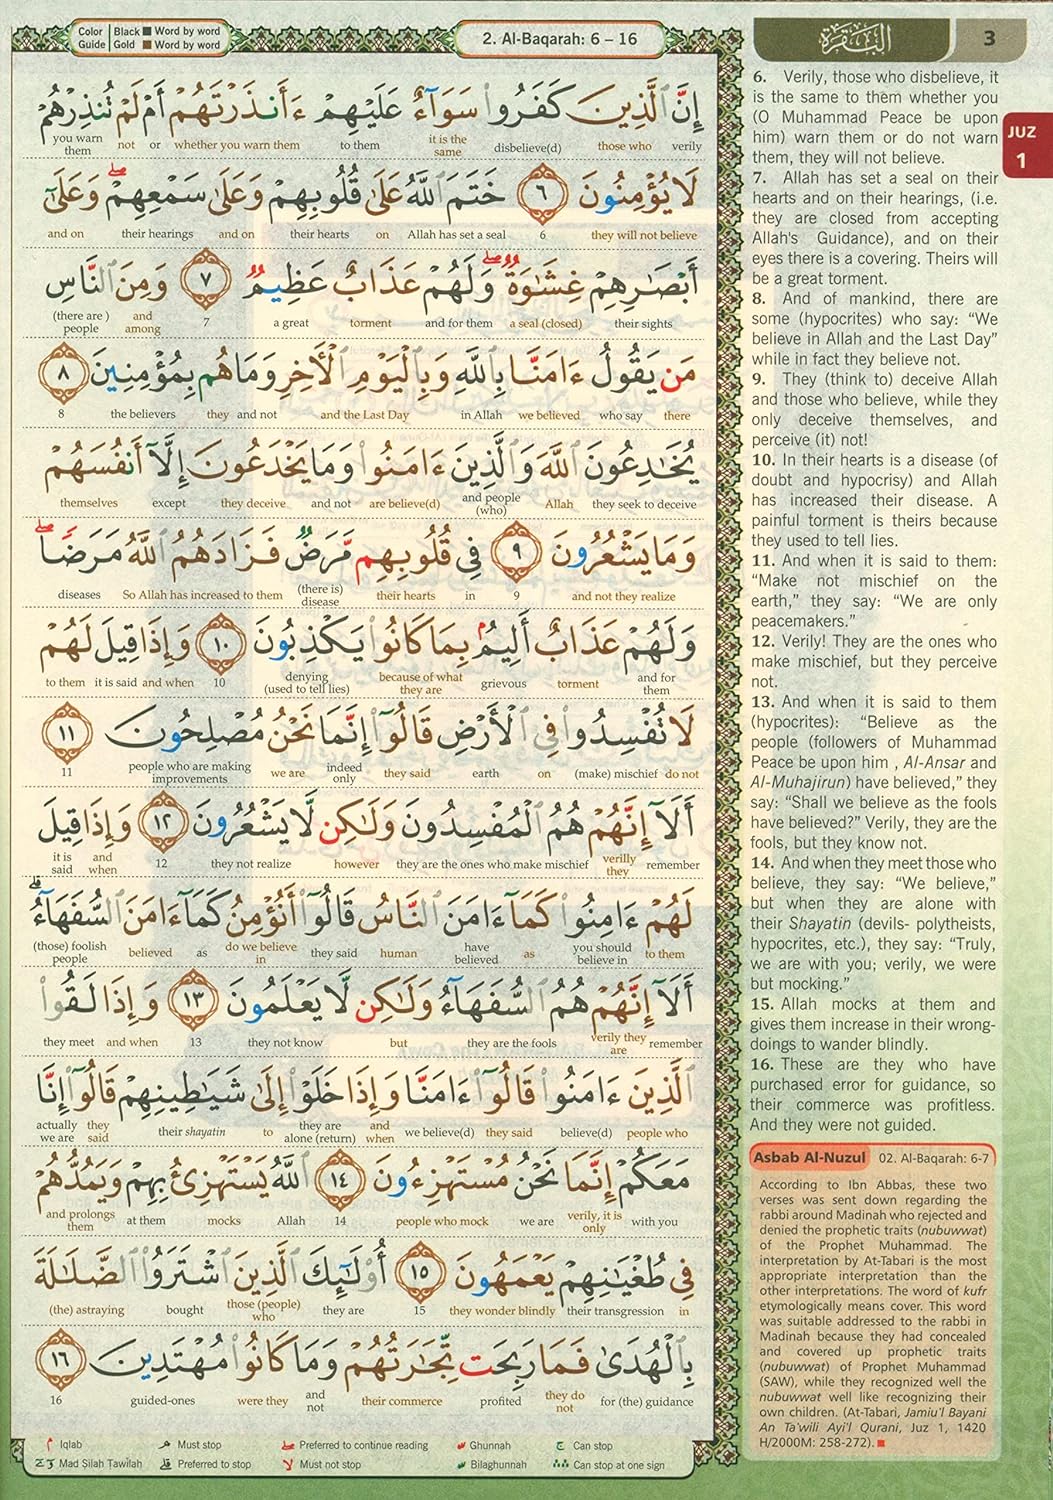 Color Guide | Black ■ Word by word
Gold ■ Word by word
2. Al-Baqarah: 6 – 16
البقرة
3
JUZ
1
إِنَّ ٱلَّذِينَ كَفَرُوا۟ سَوَآءٌ عَلَيْهِمْ ءَأَنذَرْتَهُمْ أَمْ لَمْ تُنذِرْهُمْ
verily those who disbelieve(d) it is the same to them whether you warn them or not you warn them
لَا يُؤْمِنُونَ ٦ خَتَمَ ٱللَّهُ عَلَىٰ قُلُوبِهِمْ وَعَلَىٰ سَمْعِهِمْ ۖ وَعَلَىٰٓ
they will not believe 6 Allah has set a seal on their hearts and on their hearings and on
أَبْصَـٰرِهِمْ غِشَـٰوَةٌ ۖ وَلَهُمْ عَذَابٌ عَظِيمٌ ٧ وَمِنَ ٱلنَّاسِ
their sights a seal (closed) and for them torment a great 7 and among (there are ) people
مَن يَقُولُ ءَامَنَّا بِٱللَّهِ وَبِٱلْيَوْمِ ٱلْـَٔاخِرِ وَمَا هُم بِمُؤْمِنِينَ ٨
there who say we believed in Allah and the Last Day and not they the believers 8
يُخَـٰدِعُونَ ٱللَّهَ وَٱلَّذِينَ ءَامَنُوا۟ وَمَا يَخْدَعُونَ إِلَّآ أَنفُسَهُمْ
they seek to deceive Allah and people (who) are believe(d) and not they deceive except themselves
وَمَا يَشْعُرُونَ ٩ فِى قُلُوبِهِم مَّرَضٌ فَزَادَهُمُ ٱللَّهُ مَرَضًا ۖ
and not they realize 9 in their hearts (there is) disease So Allah has increased to them diseases
وَلَهُمْ عَذَابٌ أَلِيمٌۢ بِمَا كَانُوا۟ يَكْذِبُونَ ١٠ وَإِذَا قِيلَ لَهُمْ
and for them torment grievous because of what they are denying (used to tell lies) 10 and when it is said to them
لَا تُفْسِدُوا۟ فِى ٱلْأَرْضِ قَالُوٓا۟ إِنَّمَا نَحْنُ مُصْلِحُونَ ١١
do not (make) mischief on earth they said indeed only we are people who are making improvements 11
أَلَآ إِنَّهُمْ هُمُ ٱلْمُفْسِدُونَ وَلَـٰكِن لَّا يَشْعُرُونَ ١٢ وَإِذَا قِيلَ
remember verilly they they are the ones who make mischief however they not realize 12 and when it is said
لَهُمْ ءَامِنُوا۟ كَمَآ ءَامَنَ ٱلنَّاسُ قَالُوٓا۟ أَنُؤْمِنُ كَمَآ ءَامَنَ ٱلسُّفَهَآءُ ۗ
to them you should believe in as have believed human they said do we believe in as believed (those) foolish people
أَلَآ إِنَّهُمْ هُمُ ٱلسُّفَهَآءُ وَلَـٰكِن لَّا يَعْلَمُونَ ١٣ وَإِذَا لَقُوا۟
remember verily they are they are the fools but they not know 13 and when they meet
ٱلَّذِينَ ءَامَنُوا۟ قَالُوٓا۟ ءَامَنَّا وَإِذَا خَلَوْا۟ إِلَىٰ شَيَـٰطِينِهِمْ قَالُوٓا۟ إِنَّا
people who believe(d) they said we believe(d) and when they are alone (return) to their shayatin they said actually we are
مَعَكُمْ إِنَّمَا نَحْنُ مُسْتَهْزِءُونَ ١٤ ٱللَّهُ يَسْتَهْزِئُ بِهِمْ وَيَمُدُّهُمْ
with you verily, it is only we are people who mock 14 Allah mocks at them and prolongs them
فِى طُغْيَـٰنِهِمْ يَعْمَهُونَ ١٥ أُو۟لَـٰٓئِكَ ٱلَّذِينَ ٱشْتَرَوُا۟ ٱلضَّلَـٰلَةَ
in their transgression they wonder blindly 15 they are those (people) who bought (the) astraying
بِٱلْهُدَىٰ فَمَا رَبِحَت تِّجَـٰرَتُهُمْ وَمَا كَانُوا۟ مُهْتَدِينَ ١٦
for (the) guidance they do not profited their commerce and not were they guided-ones 16
6. Verily, those who disbelieve, it
is the same to them whether you
(O Muhammad Peace be upon
him) warn them or do not warn
them, they will not believe.
7. Allah has set a seal on their
hearts and on their hearings, (i.e.
they are closed from accepting
Allah's Guidance), and on their
eyes there is a covering. Theirs will
be a great torment.
8. And of mankind, there are
some (hypocrites) who say: “We
believe in Allah and the Last Day”
while in fact they believe not.
9. They (think to) deceive Allah
and those who believe, while they
only deceive themselves, and
perceive (it) not!
10. In their hearts is a disease (of
doubt and hypocrisy) and Allah
has increased their disease. A
painful torment is theirs because
they used to tell lies.
11. And when it is said to them:
“Make not mischief on the
earth,” they say: “We are only
peacemakers.”
12. Verily! They are the ones who
make mischief, but they perceive
not.
13. And when it is said to them
(hypocrites): “Believe as the
people (followers of Muhammad
Peace be upon him , Al-Ansar and
Al-Muhajirun) have believed,” they
say: “Shall we believe as the fools
have believed?” Verily, they are the
fools, but they know not.
14. And when they meet those who
believe, they say: “We believe,”
but when they are alone with
their Shayatin (devils- polytheists,
hypocrites, etc.), they say: “Truly,
we are with you; verily, we were
but mocking.”
15. Allah mocks at them and
gives them increase in their wrong-
doings to wander blindly.
16. These are they who have
purchased error for guidance, so
their commerce was profitless.
And they were not guided.
Asbab Al-Nuzul 02. Al-Baqarah: 6-7
According to Ibn Abbas, these two
verses was sent down regarding the
rabbi around Madinah who rejected and
denied the prophetic traits (nubuwwat)
of the Prophet Muhammad. The
interpretation by At-Tabari is the most
appropriate interpretation than the
other interpretations. The word of kufr
etymologically means cover. This word
was suitable addressed to the rabbi in
Madinah because they had concealed
and covered up prophetic traits
(nubuwwat) of Prophet Muhammad
(SAW), while they recognized well the
nubuwwat well like recognizing their
own children. (At-Tabari, Jamiu'l Bayani
An Ta'wili Ayi'l Qurani, Juz 1, 1420
H/2000M: 258-272).
Iqlab Must stop Preferred to continue reading Ghunnah Can stop
Mad Silah Tawilah Preferred to stop Must not stop Bilaghunnah Can stop at one sign